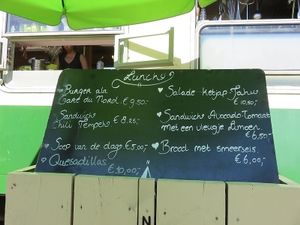 Lunch
Burger ala
Gare du Nord €9,50-
Sandwich
Chili Tempeh € 8.25-
Soep van de dag €5.00-
Quesadillas
€10,00,-
Salade ketjap Tahu
€10,50,-
Sandwich Avocado Tomaat
met een vleugje Limoen
€6,50-
Brood met smeersels
€6,00,-
N